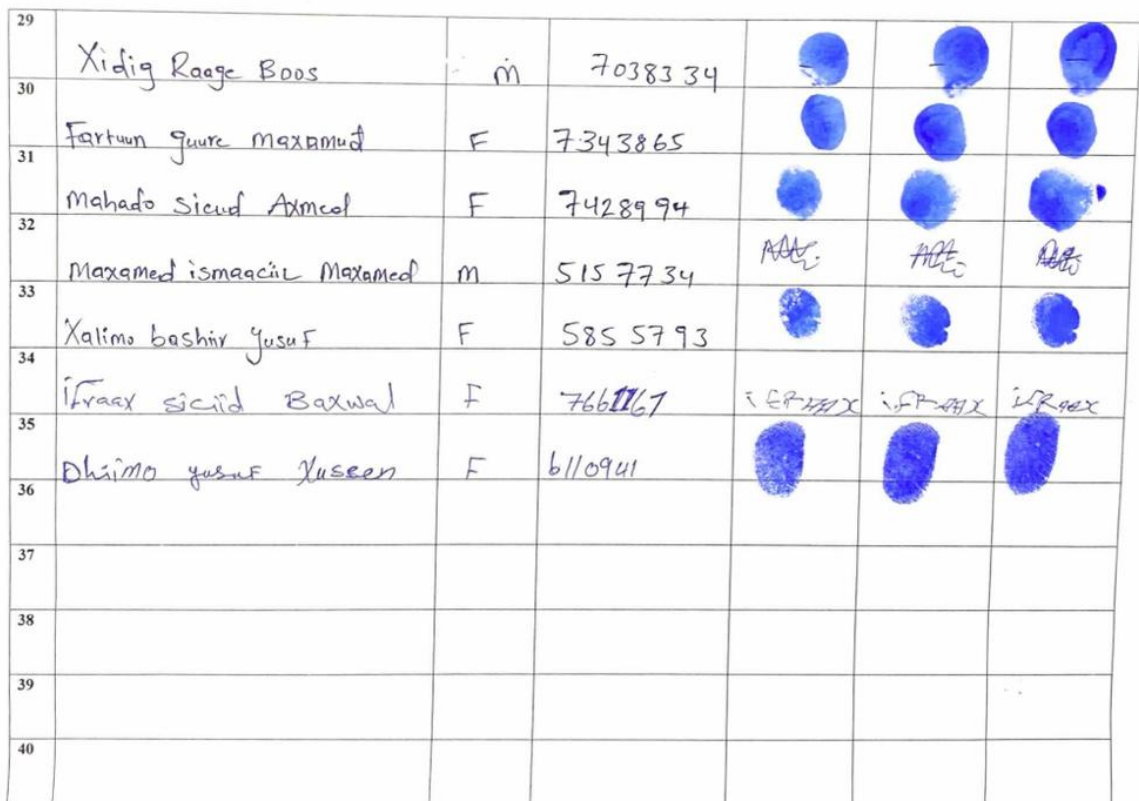 29 Xidig Raage Boos m 7038334
30 Fartuun guure maxamud F 7343865
31 Mahado sicud Axmed F 7428994
32 Maxamed ismaaciil Maxamed m 5157734
33 Xalimo bashiir yusuf F 5855793
34 ifraax siciid Baxwal F 7661167 iFRAAX iFRAAX iFRaax
35 Dhiimo yusuf Xuseen F 6110941
36
37
38
39
40